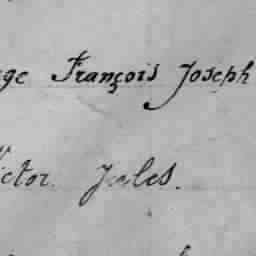 François Joseph
ictor. Jules.